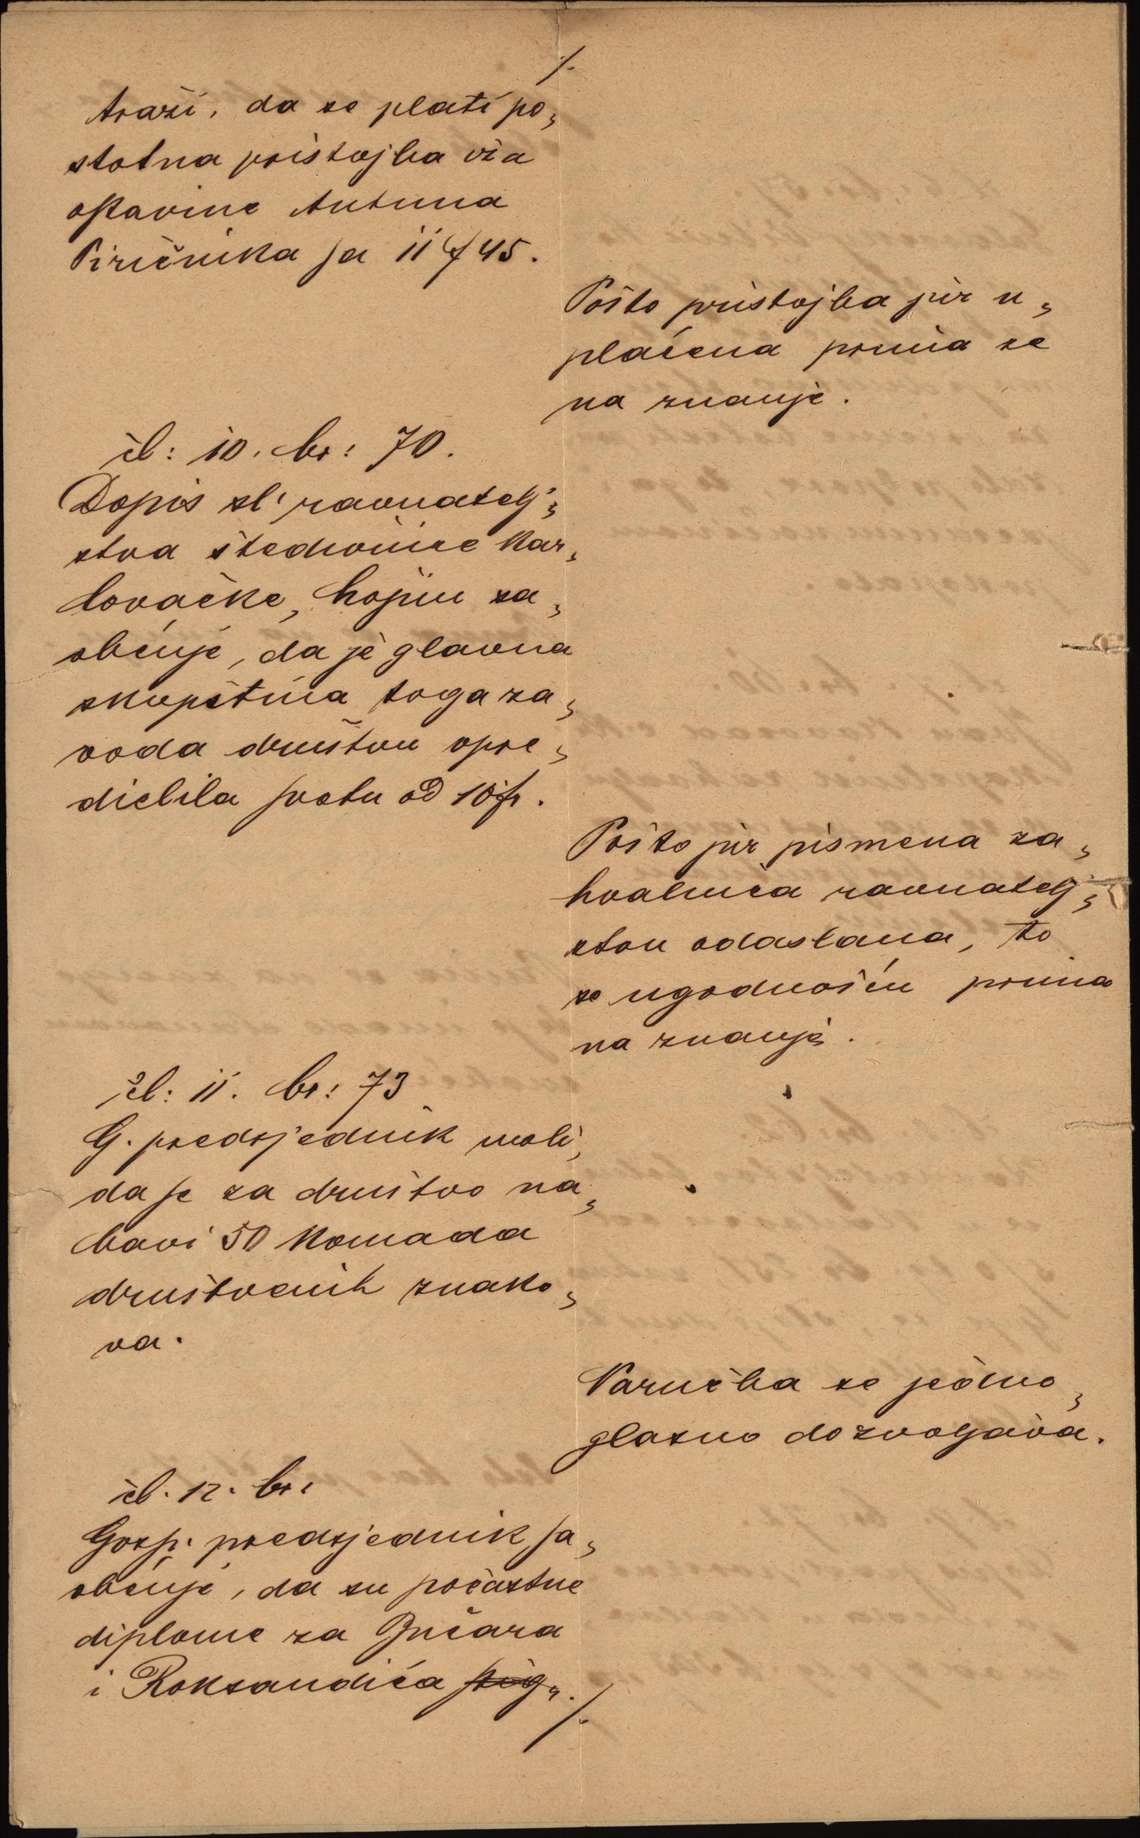 ./.
traži, da se plati po„
stotna pristojba iza
ostavine Antuna
Piričnika sa 11 f 45.
Pošto pristojba jur u„
plaćena prima se
na znanje.
čl: 10. br: 70.
Dopis sl. ravnatelj„
stva štedionice kar„
lovačke, kojim sa„
obćuje, da je glavna
skupština toga za„
voda družtvu opre„
dielila svotu od 10 fr.
Pošto jur pismena za„
hvalnica ravnatelj„
stvu odaslana, to
se ugodnošću prima
na znanje.
čl: 11. br: 73
G. predsjednik moli,
da se za družtvo na„
bavi 50 komada
družtvenih znako„
va.
Naručba se jedno„
glasno dozvoljava.
čl. 12. br:
Gosp. predsjednik sa„
obćuje, da su počastne
diplome za Zučara
i Roksandića stig„
./.